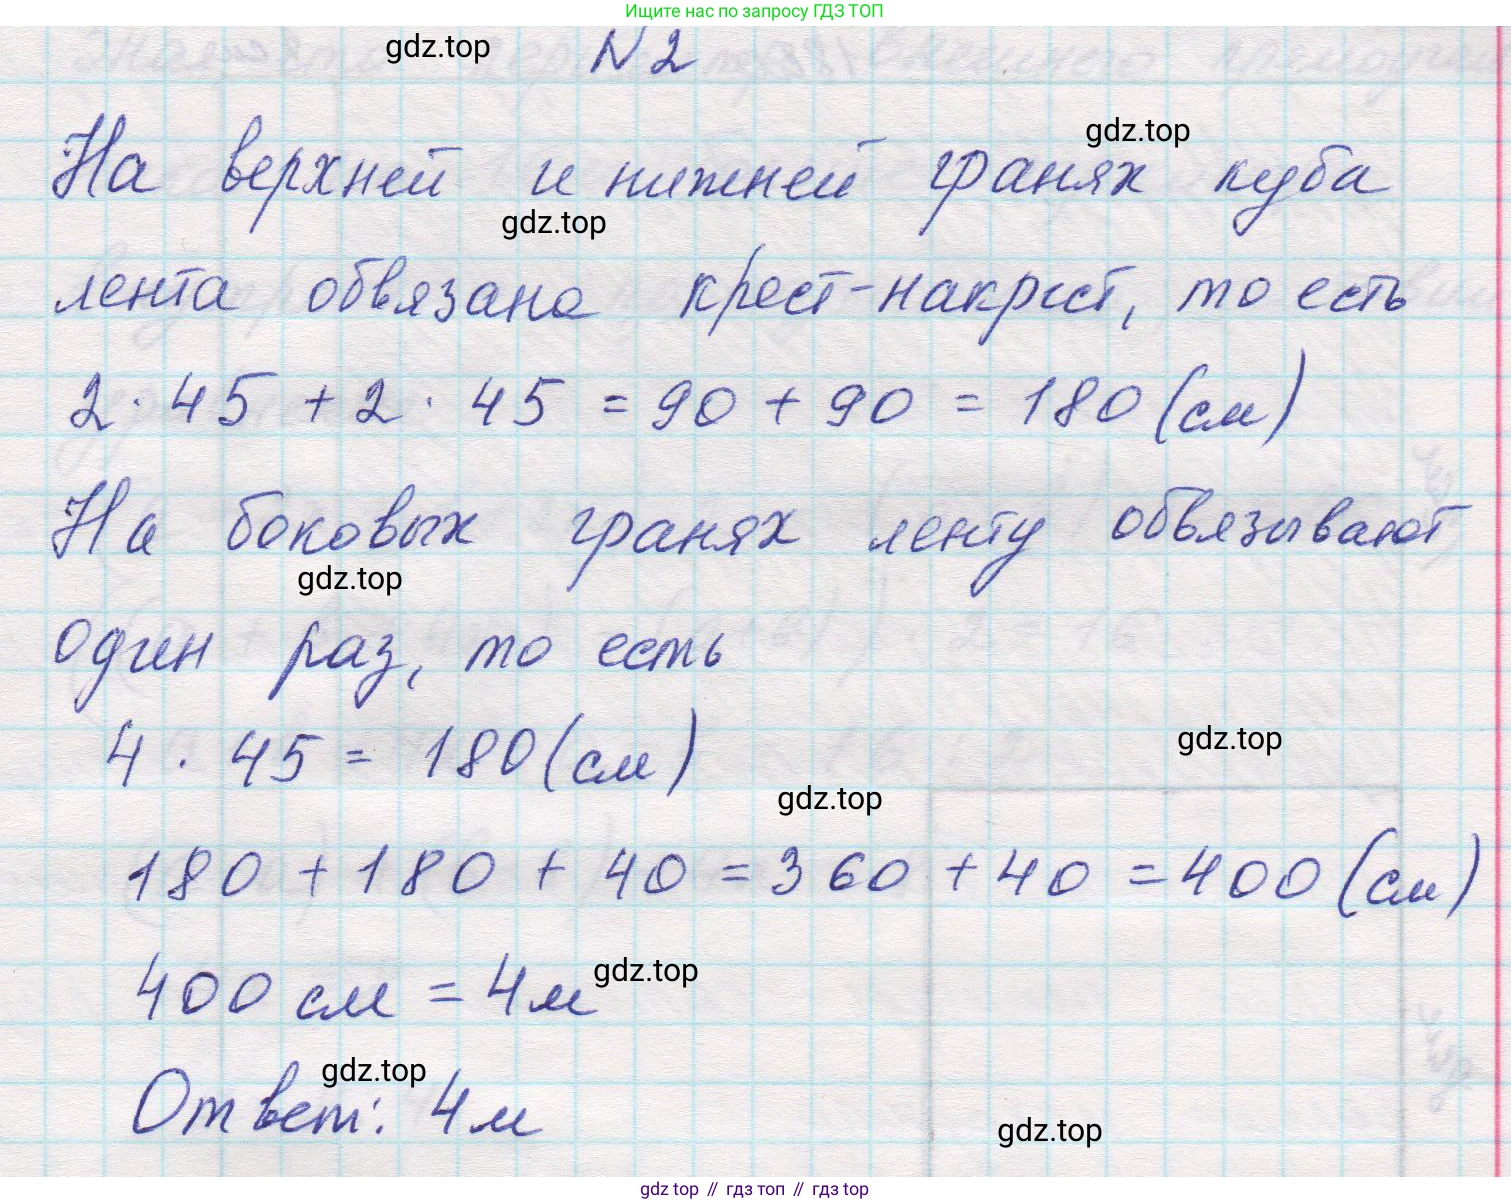 Ищите нас по запросу ГДЗ ТОП
gdz.top
N 2
gdz.top
На верхней и нижней гранях куба
gdz.top
лента обвязана крест-накрест, то есть
2 · 45 + 2 · 45 = 90 + 90 = 180 (см)
На боковых гранях ленту обвязывают
gdz.top
один раз, то есть
4 · 45 = 180 (см)
gdz.top
gdz.top
180 + 180 + 40 = 360 + 40 = 400 (см)
400 см = 4 м
gdz.top
gdz.top
Ответ: 4 м
gdz.top
gdz top // гдз топ // гдз top